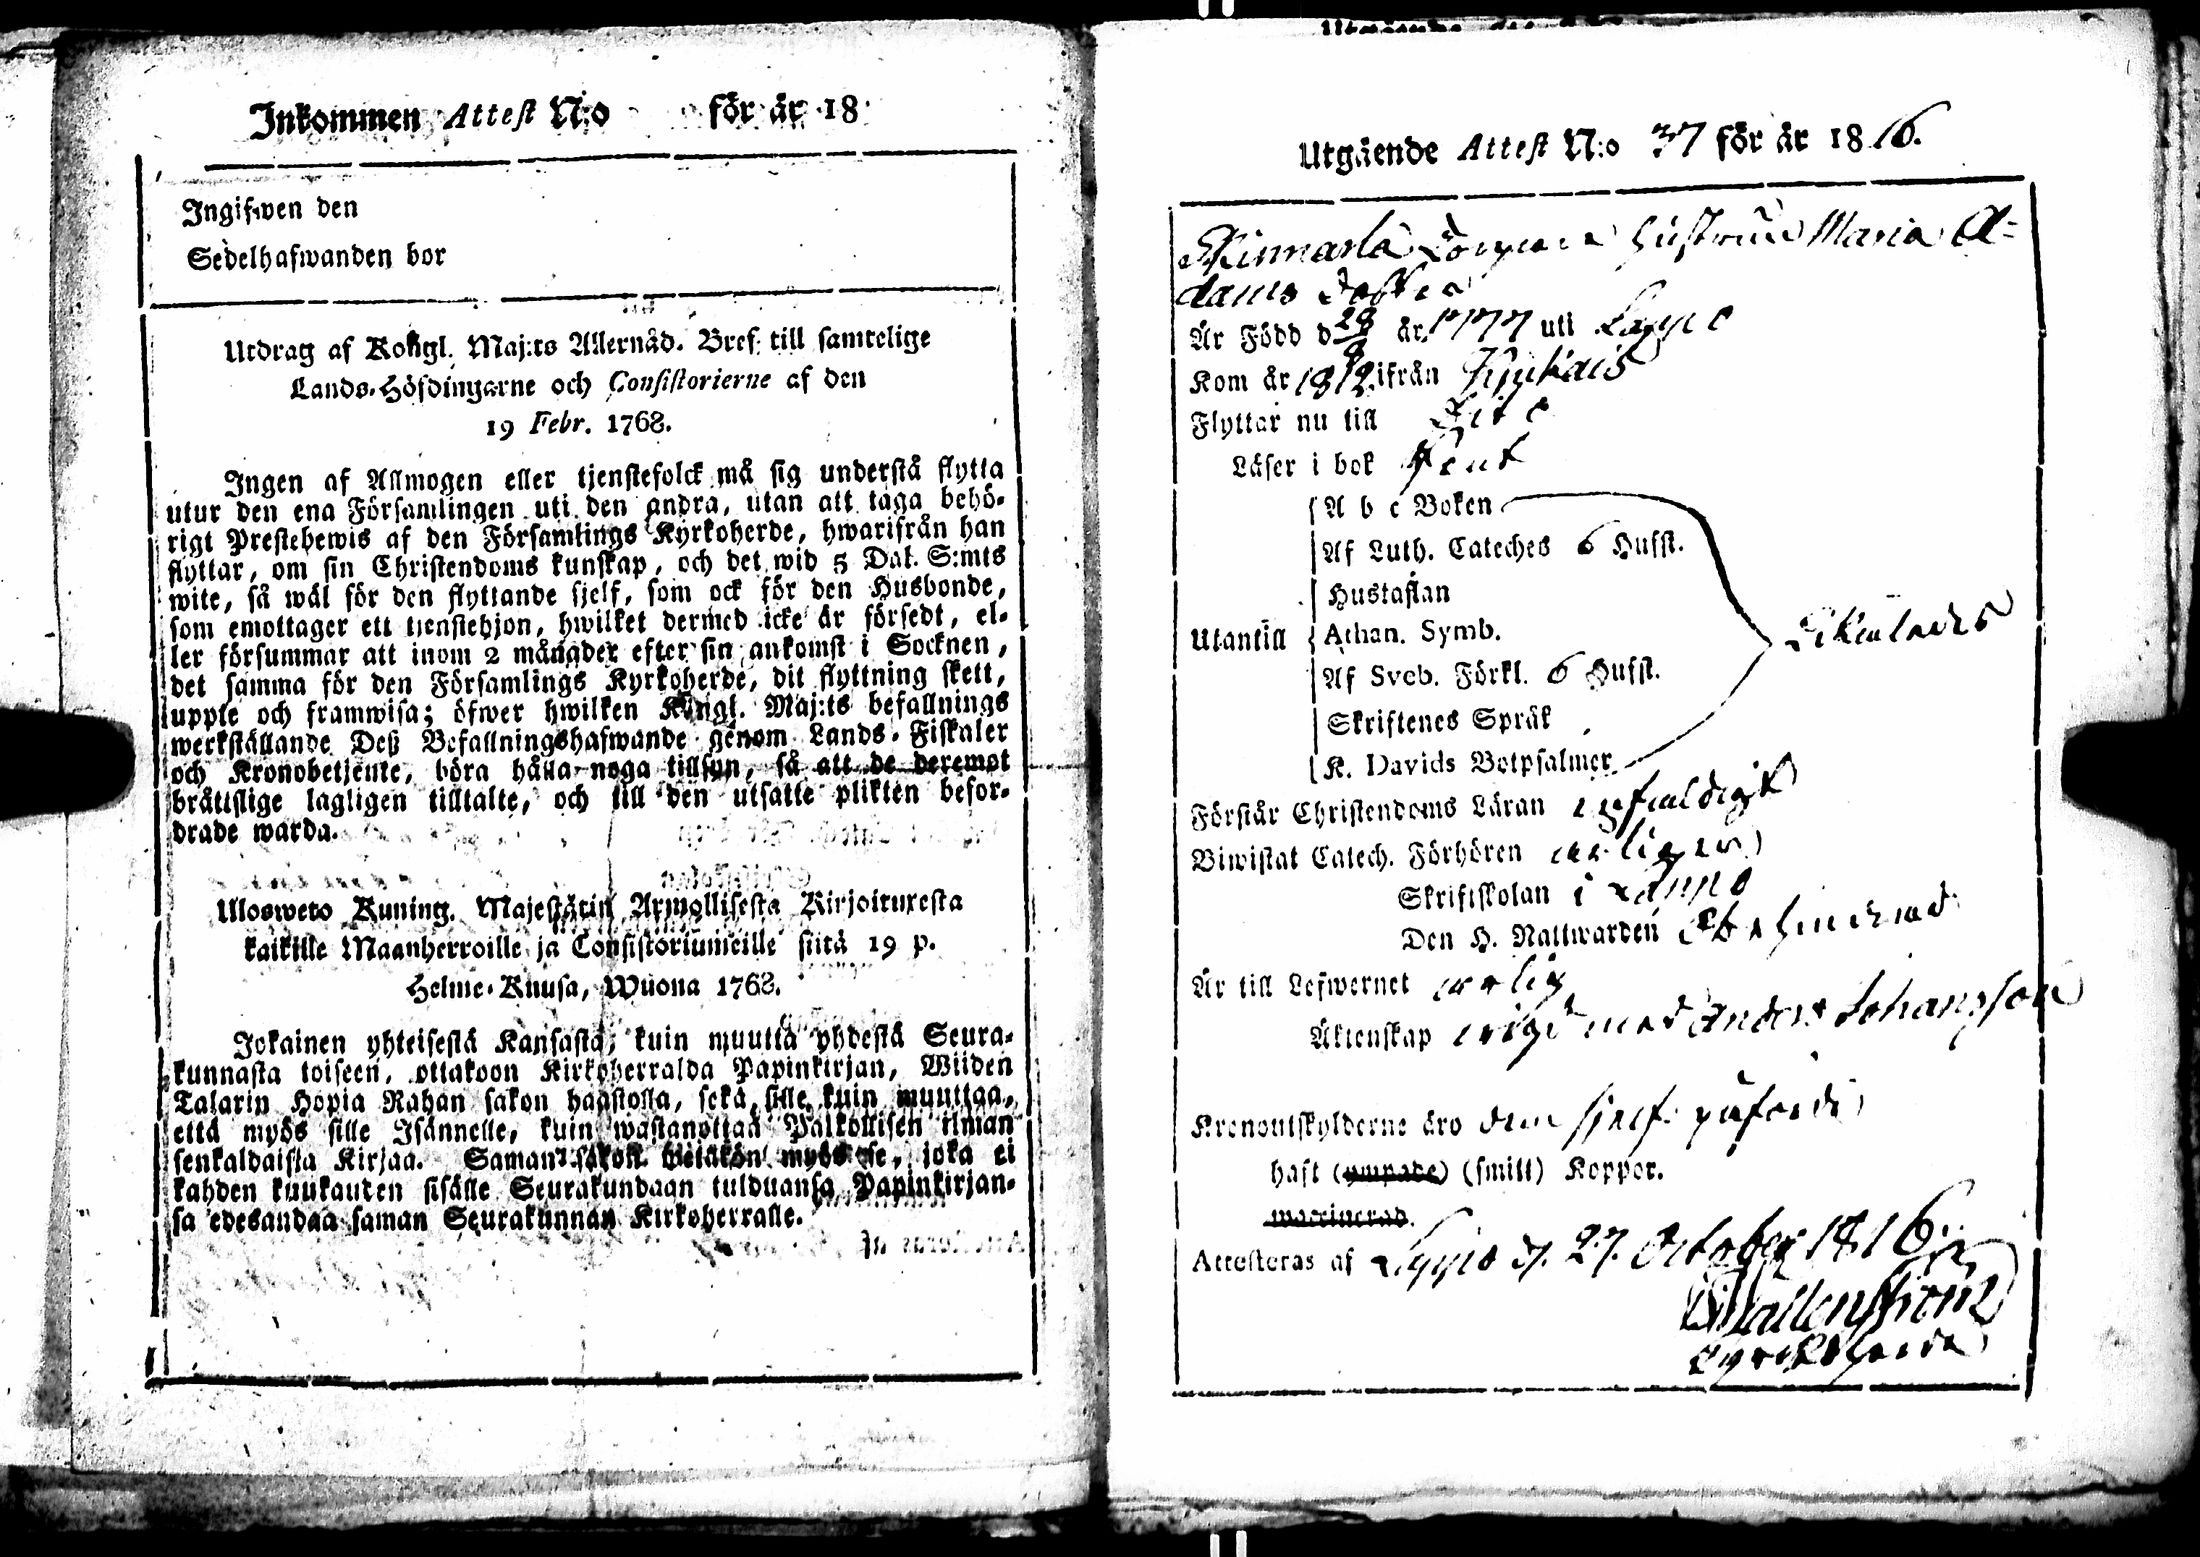 Inkommen Attest N:o för år 18
Ingifwen den
Sedelhafwanden bor
Utdrag af Kongl. Maj:ts Allernåd. Bref till samtelige
Lands-Höfdingarne och Consistorierne af den
19 Febr. 1768.
Ingen af Allmogen eller tjenstefolck må sig understå flytta
utur den ena Församlingen uti den andra, utan att taga behö-
rigt Prestebewis af den Församlings Kyrkoherde, hwarifrån han
flyttar, om sin Christendoms kunskap, och det wid 5 Dal. S:mts
wite, så wäl för den flyttande sjelf, som ock för den Husbonde,
som emottager ett tjenstehjon, hwilket dermed icke är försedt, el-
ler försummar att inom 2 månader efter sin ankomst i Socknen,
det samma för den Församlings Kyrkoherde, dit flyttning skett,
uppte och framwisa; öfwer hwilken Kongl. Maj:ts befallnings
werkställande Deß Befallningshafwande genom Lands-Fiskaler
och Kronobetjente, böra hålla noga tillsyn, så att de deremot
bråttslige lagligen tilltalte, och till den utsatte plikten befor-
drade warda.
Ulosweto Kuning. Majestätin Armollisesta Kirjoituxesta
kaikille Maanherroille ja Consistoriumeille siitä 19 p.
Helme-Kuusa, Wuona 1768.
Jokainen yhteisestä Kansasta, kuin muutta yhdestä Seura-
kunnasta toiseen, ottakoon Kirkoherralda Papinkirjan, Wiiden
Talarin Hopia Rahan sakon haastolla, sekä sille kuin muuttaa,
että myös sille Isännelle, kuin wastanottaa Palkollisen ilman
senkaldaista Kirjaa. Saman sakon wetäkön myös se, joka ei
kahden kuukauden sisälle Seurakundaan tulduansa Papinkirjan-
sa edesandaa saman Seurakunnan Kirkoherralle.
Utgående Attest N:o 37 för år 1816.
Hustrun Maria A-
dams Dotter
Är Född d 28/8 år 1777 uti Lappo
Kom år 1812 ifrån Kyykais
Flyttar nu till
Läser i bok
A b c Boken
Af Luth. Cateches 6 Hufst.
Hustaflan
Utantill Athan. Symb.
Af Sveb. Förkl. 6 Hufst.
Skriftenes Språk
K. Davids Botpsalmer
Förstår Christendoms Läran enfaldigt
Biwistat Catech. Förhören årligen
Skriftskolan i Lappo
Den H. Nattwarden
Är till Lefwernet ärlig
Äktenskap wigd med Anders Johansson
Kronoutskylderne äro dem sjelf påförde
haft (ympade) (smitt) Koppor.
waccinerad.
Attesteras af Lappo d. 27. October 1816.
Wallenström
Kyrckoherde